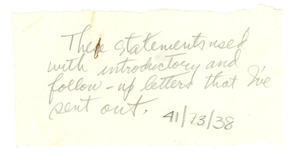 These statements used
with introductory and
follow-up letters that I've
sent out. 41/73/38